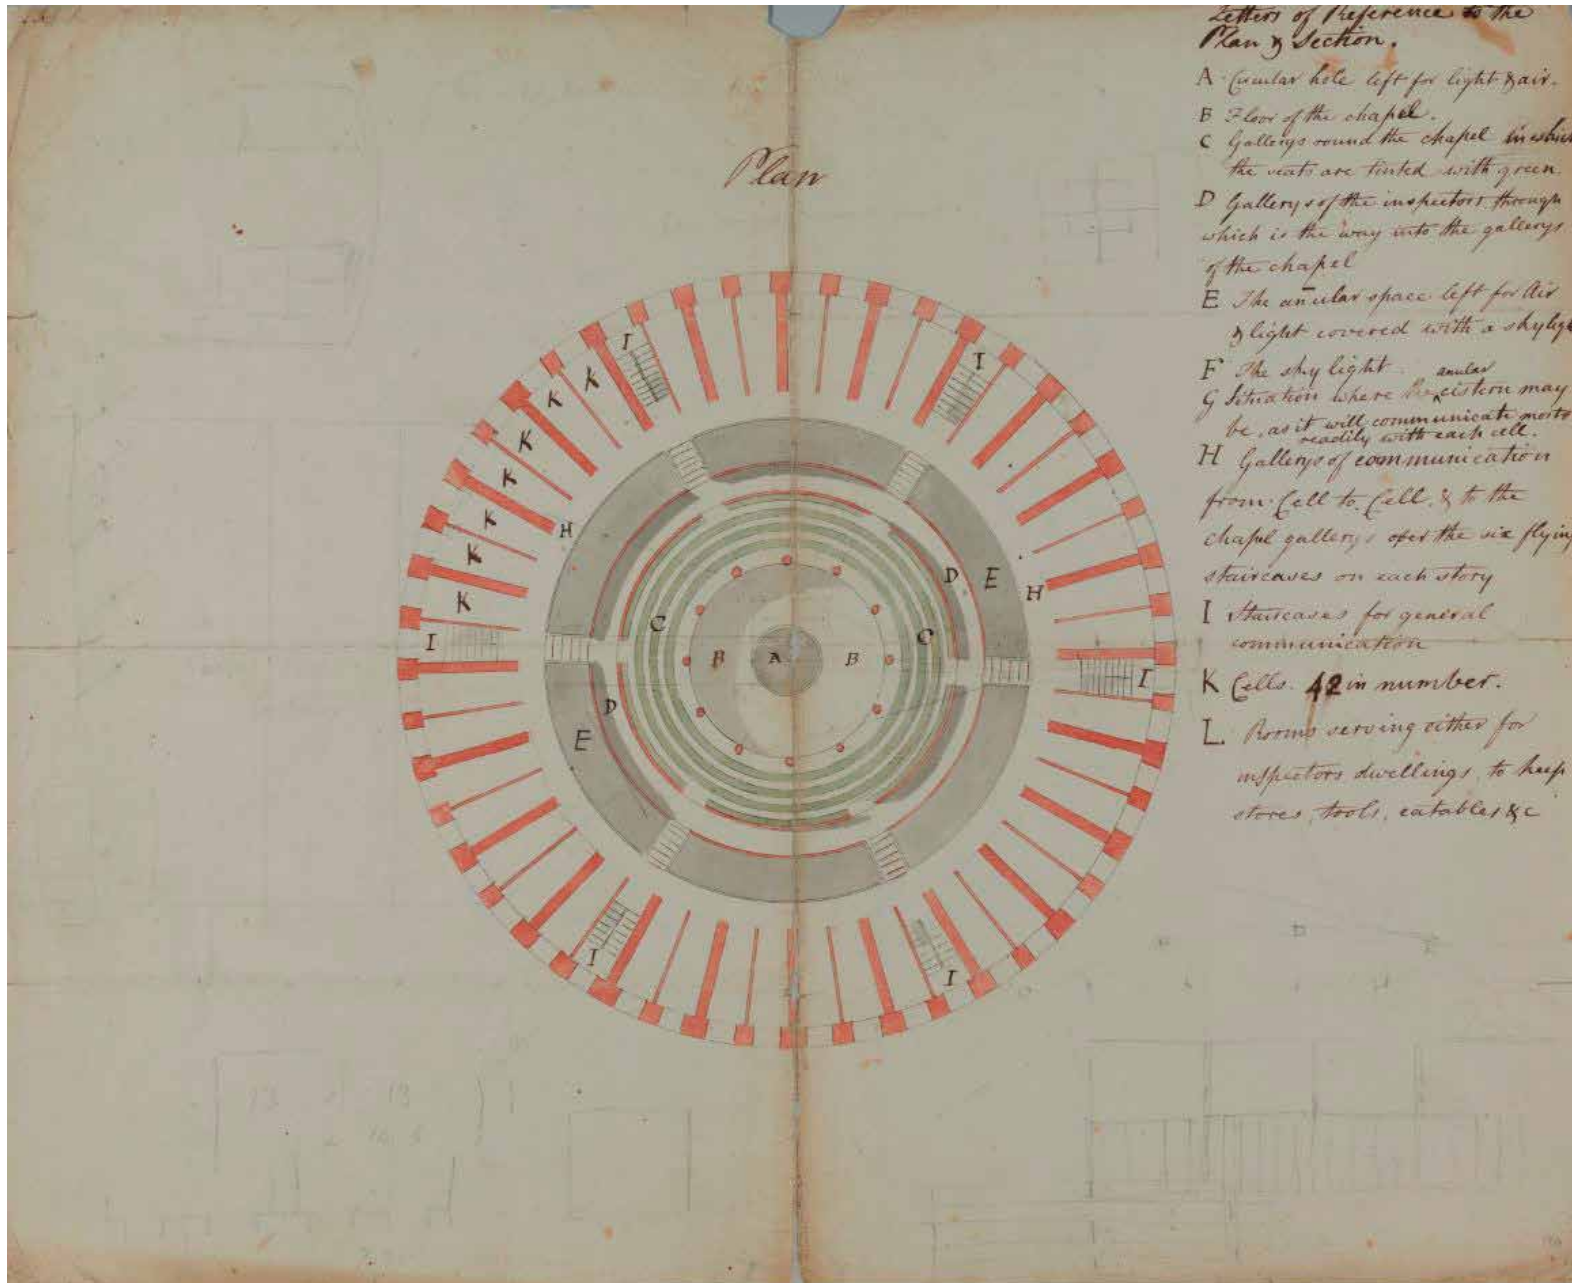 Letters of Reference to the
Plan & Section.
A Circular hole left for light & air.
B Floor of the chapel.
C Gallerys round the chapel in which
the seats are tinted with green.
D Gallerys of the inspectors through
which is the way into the gallerys
of the chapel
E The anular space left for Air
& light covered with a skylig
F The sky light
anular
G Situation where cistern may
be, as it will communicate most
readily with each cell.
H Gallerys of communication
from Cell to Cell, & to the
chapel gallerys over the six flying
staircases on each story
I Staircases for general
communication
K Cells. 42 in number.
L. Rooms serving either for
inspectors dwellings, to keep
stores, tools, eatables &c
Plan
I
I
K
K
K
K
H
K
K
D
E
H
K
C
C
I
B
A
B
I
D
E
I
I
13
13